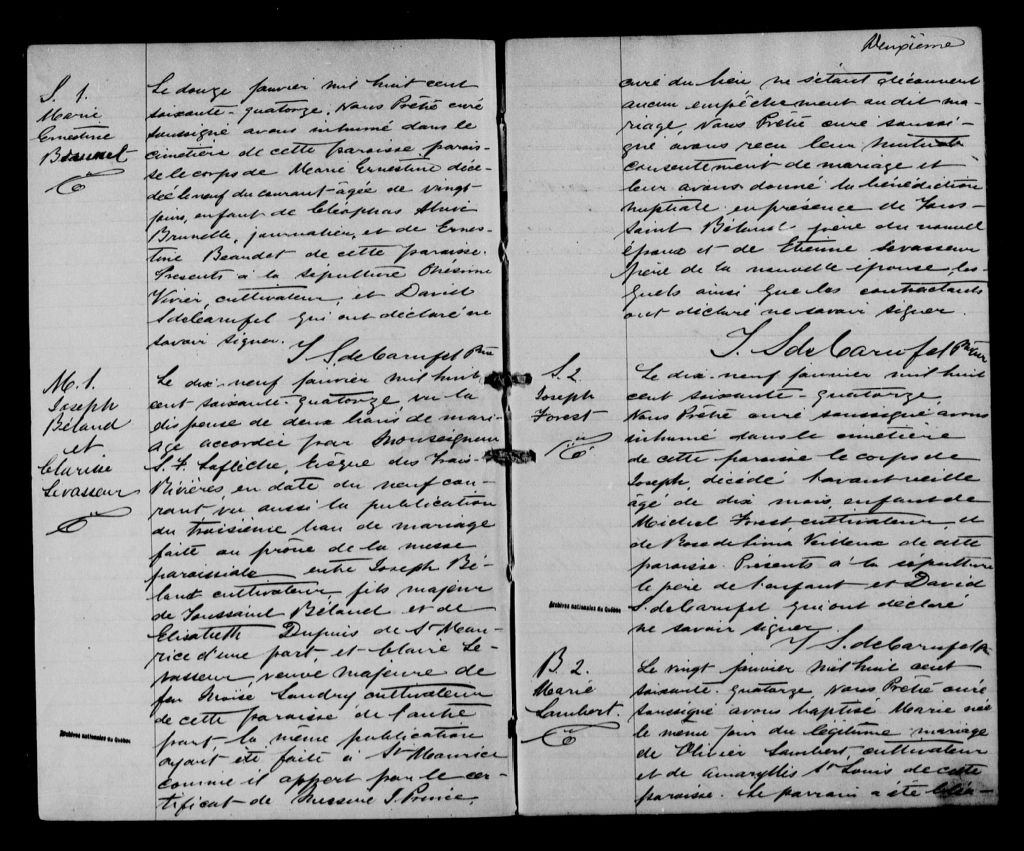 S. 1.
Marie
Ernestine
Brunel
Le douze janvier mil huit cent
soixante-quatorze, Nous Prêtre curé
soussigné avons inhumé dans le
cimetière de cette paroisse parois-
se le corps de Marie Ernestine décé-
dée le neuf du courant âgée de vingt
jours, enfant de Cléophas
Brunelle, journalier, et de Ernes-
tine Beaudet de cette paroisse.
Présents à la sépulture Onésime
Vivier, cultivateur, et David
S. de Carufel qui ont déclaré ne
savoir signer.
J. S. de Carufel Ptre
M. 1.
Joseph
Béland
et
Clarise
Levasseur
Le dix-neuf janvier mil huit
cent soixante-quatorze vu la
dispense de deux bans de mari-
age accordée par Monseigneur
L. F. Laflèche, Évêque des Trois-
Rivières, en date du neuf cou-
rant vu aussi la publication
du troisième ban de mariage
faite au prône de la messe
paroissiale entre Joseph Bé-
land cultivateur, fils majeur
de Toussaint Béland et de
Elisabeth Dupuis de St Mau-
rice d'une part, et Claire Le-
vasseur, veuve majeure de
feu Moïse Landry cultivateur
de cette paroisse de l'autre
part, la même publication
ayant été faite à St Maurice
comme il appert par le cer-
tificat de Messire J. Prince,
Archives nationales du Québec
Deuxième
curé du lieu ne s'étant découvert
aucun empêchement au dit ma-
riage, Nous Prêtre curé soussi-
gné avons reçu leur mutuel
consentement de mariage et
leur avons donné la bénédiction
nuptiale en présence de Tous-
saint Béland, père du nouvel
époux et de Etienne Levasseur
père de la nouvelle épouse, les-
quels ainsi que les contractants
ont déclaré ne savoir signer.
J. S. de Carufel Ptre Cur
S. 2
Joseph
Forest
Le dix-neuf janvier mil huit
cent soixante-quatorze,
Nous Prêtre curé soussigné avons
inhumé dans le cimetière
de cette paroisse le corps de
Joseph, décédé l'avant veille
âgé de dix mois, enfant de
Michel Forest, cultivateur, et
de Rose de Lima Veilleux de cette
paroisse. Présents à la sépulture
le père de l'enfant et David
S. de Carufel qui ont déclaré
ne savoir signer
J. S. de Carufel Ptr
Archives nationales du Québec
B 2.
Marie
Lambert.
Le vingt janvier mil huit cent
soixante-quatorze, Nous Prêtre curé
soussigné avons baptisé Marie née
le même jour du légitime mariage
de Olivier Lambert cultivateur
et de Amaryllis St Louis de cette
paroisse. Le parrain a été Cléo-